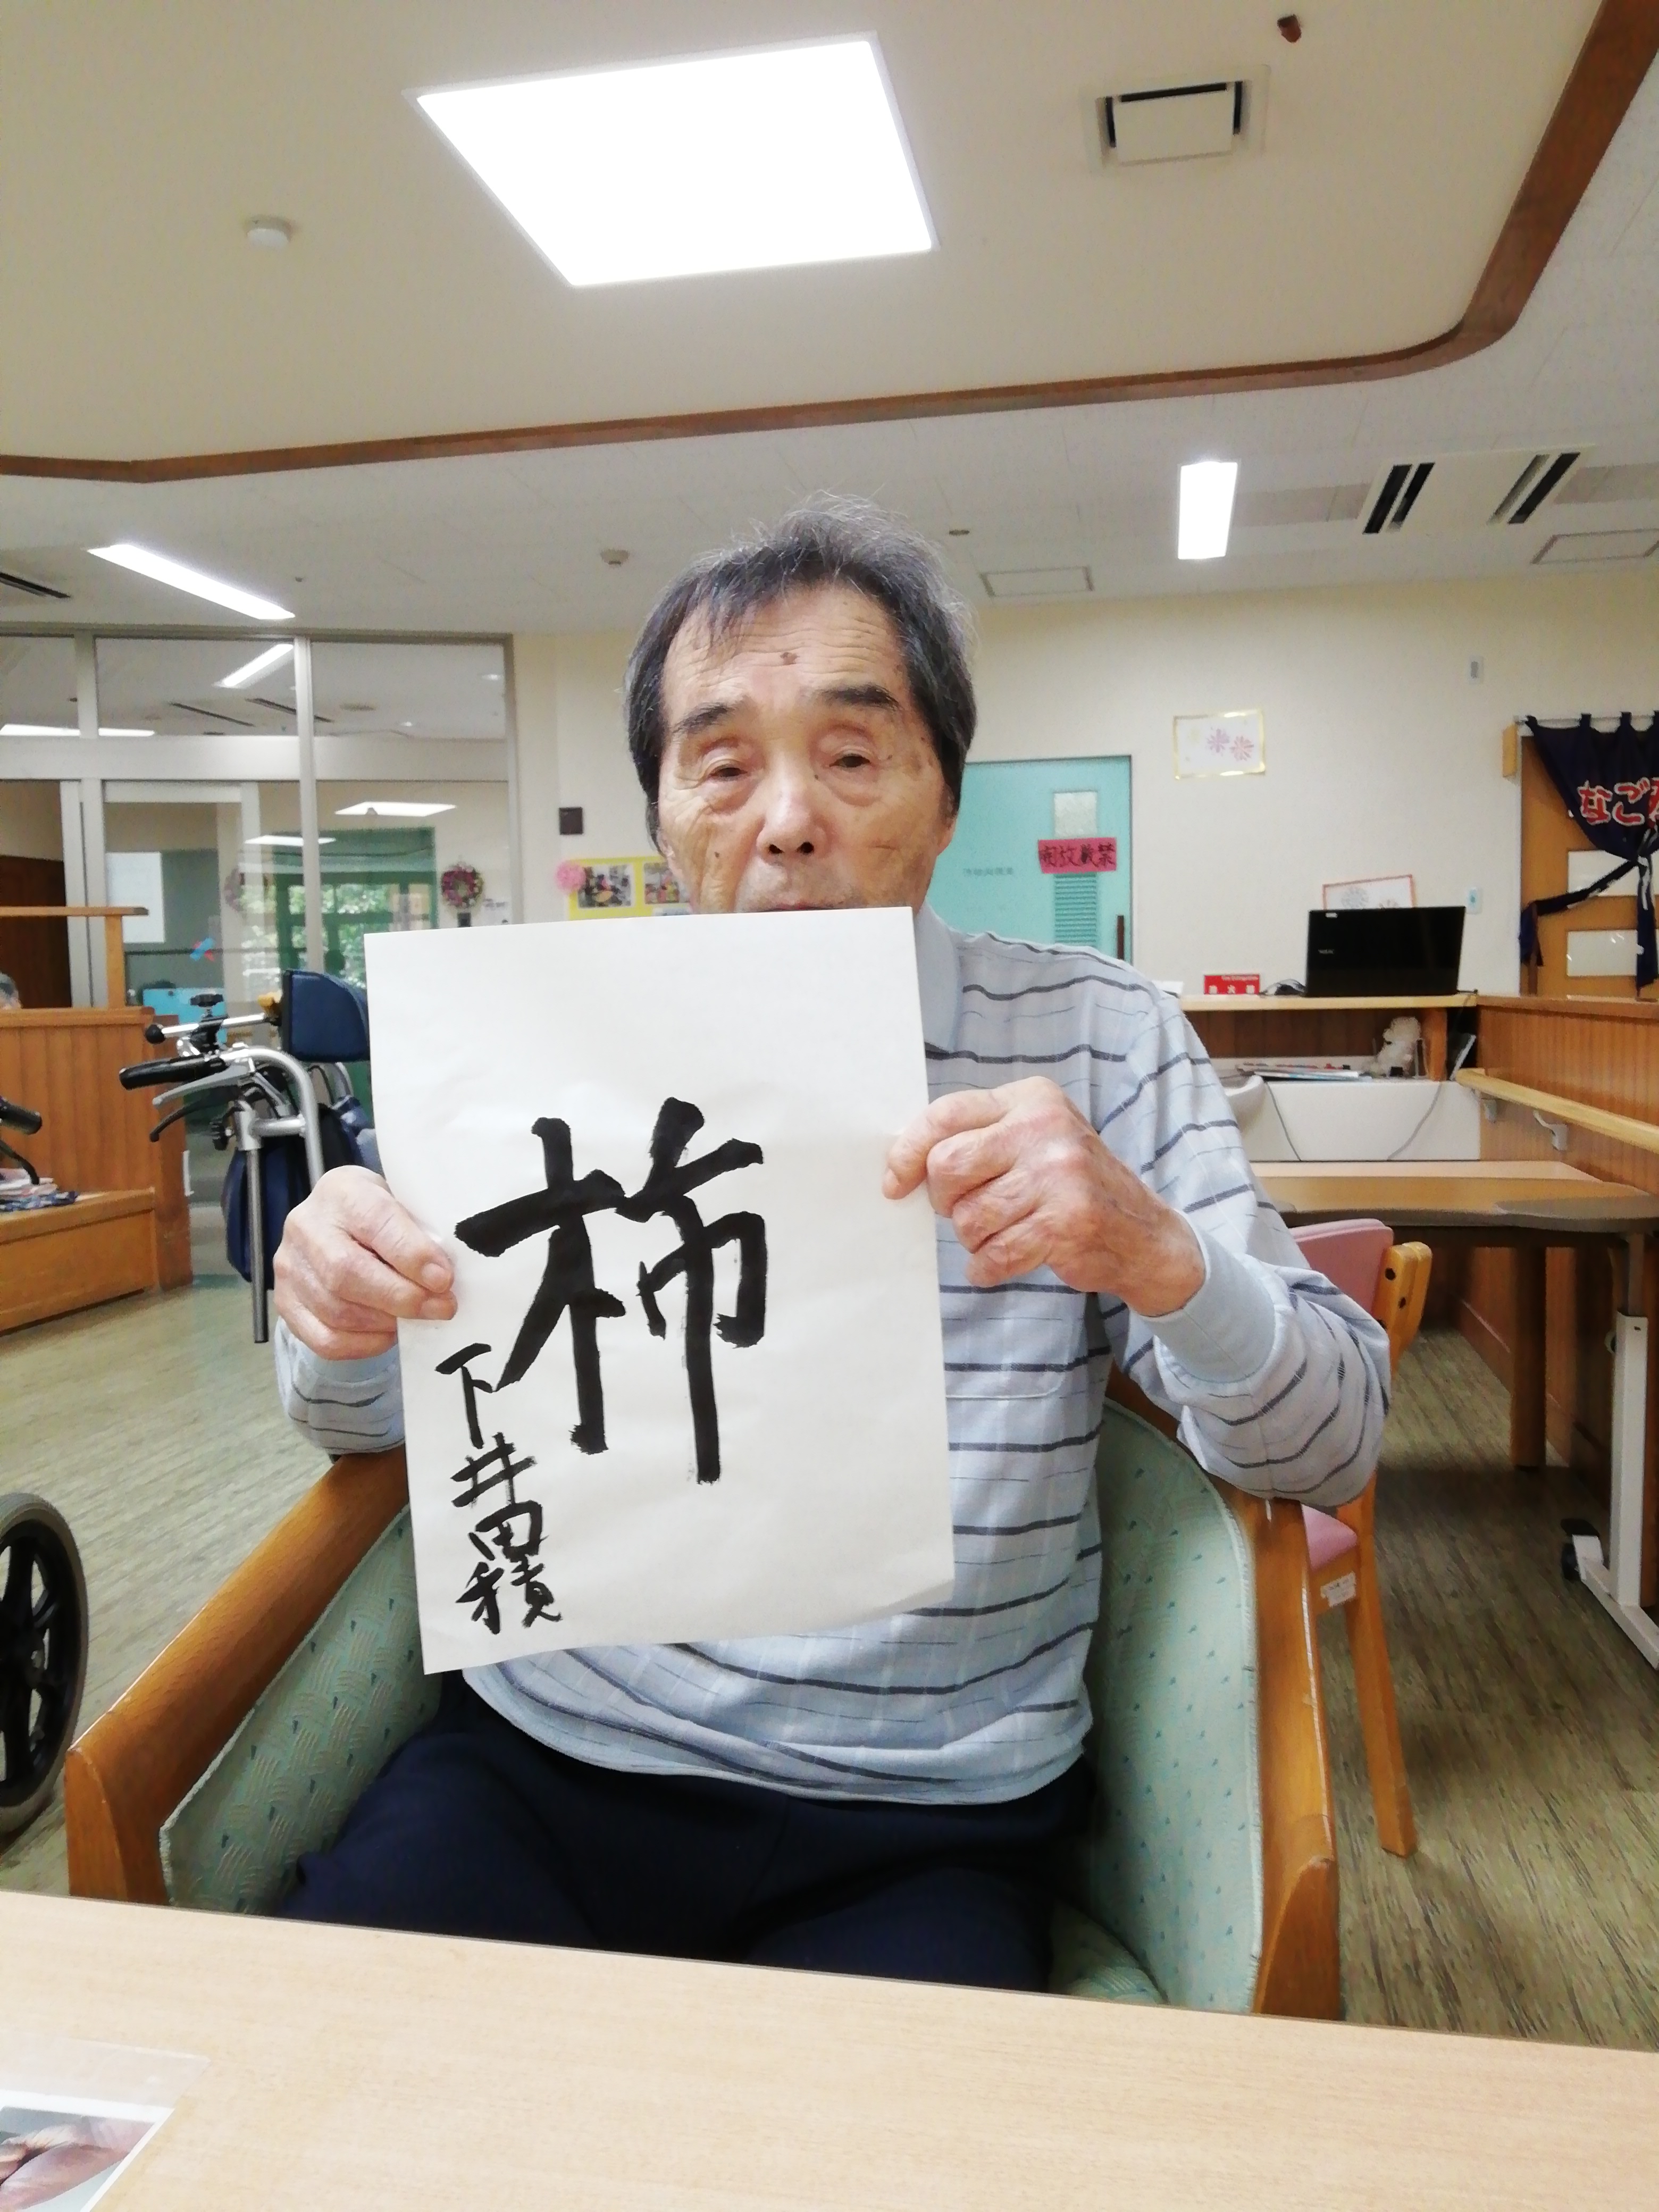 柿
下井田積
開放厳禁
なごみ
NEC